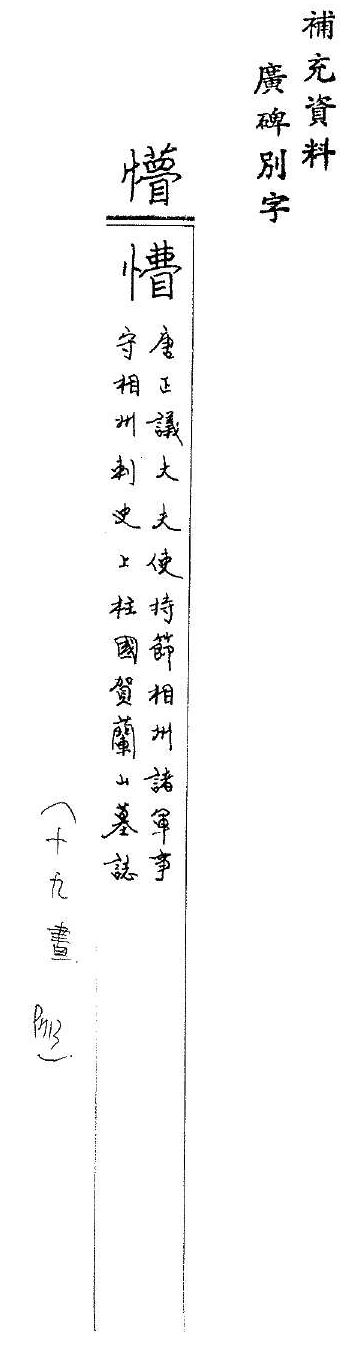 補充資料
廣碑別字
懵
唐正議大夫使持節相州諸軍事
守相州刺史上柱國賀蘭山墓誌
（十九畫 P713）